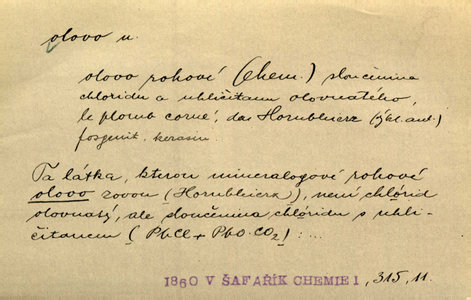 olovo n.
olovo rohové (Chem.) sloučenina
chloridu a uhličitanu olovnatého,
le plomb corné, das Hornbleierz (Jg. ant.)
fosgenit, kerasin.
Ta látka, kterou mineralogové rohové
olovo zovou (Hornbleierz), není chlórid
olovnatý, ale sloučenina chlóridu s uhli-
čitanem (PbCl + PbO.CO2) : ...
1860 V ŠAFAŘÍK CHEMIE I, 315, 11.